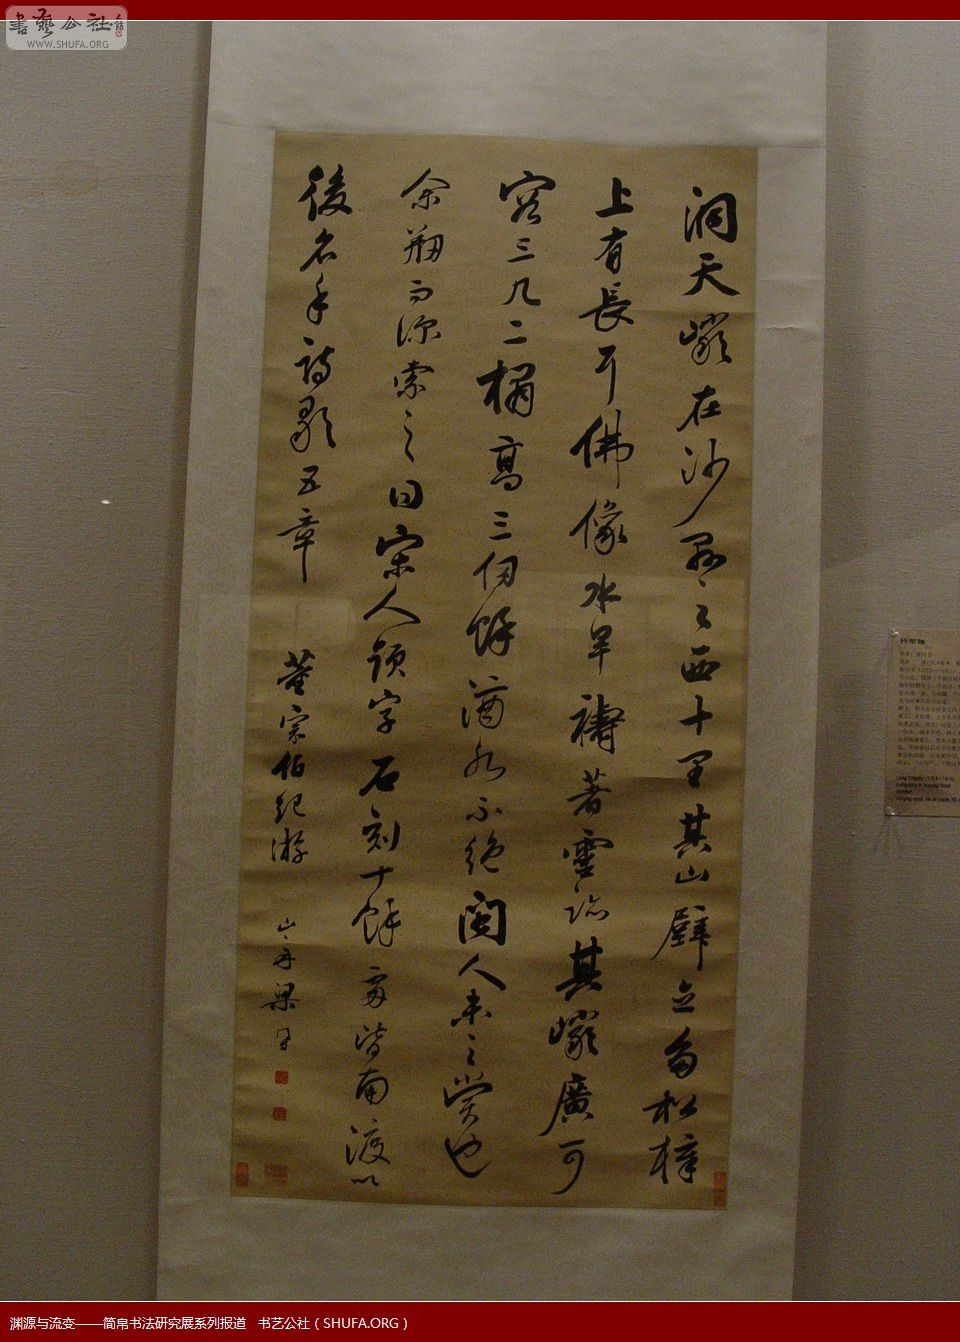 書藝公社
WWW.SHUFA.ORG
洞天巖在沙縣之西十里其山壁立多松樟
上有長耳佛像水旱禱著靈跡其巖廣可
容三几二榻高三仞餘滴水不絕閩人未之賞也
余搠而深索之曰宗人頌字石刻十餘處皆南渡以
後名手詩歌五章
董宗伯紀游
山舟梁同書
渊源与流变——简帛书法研究展系列报道 书艺公社（SHUFA.ORG）